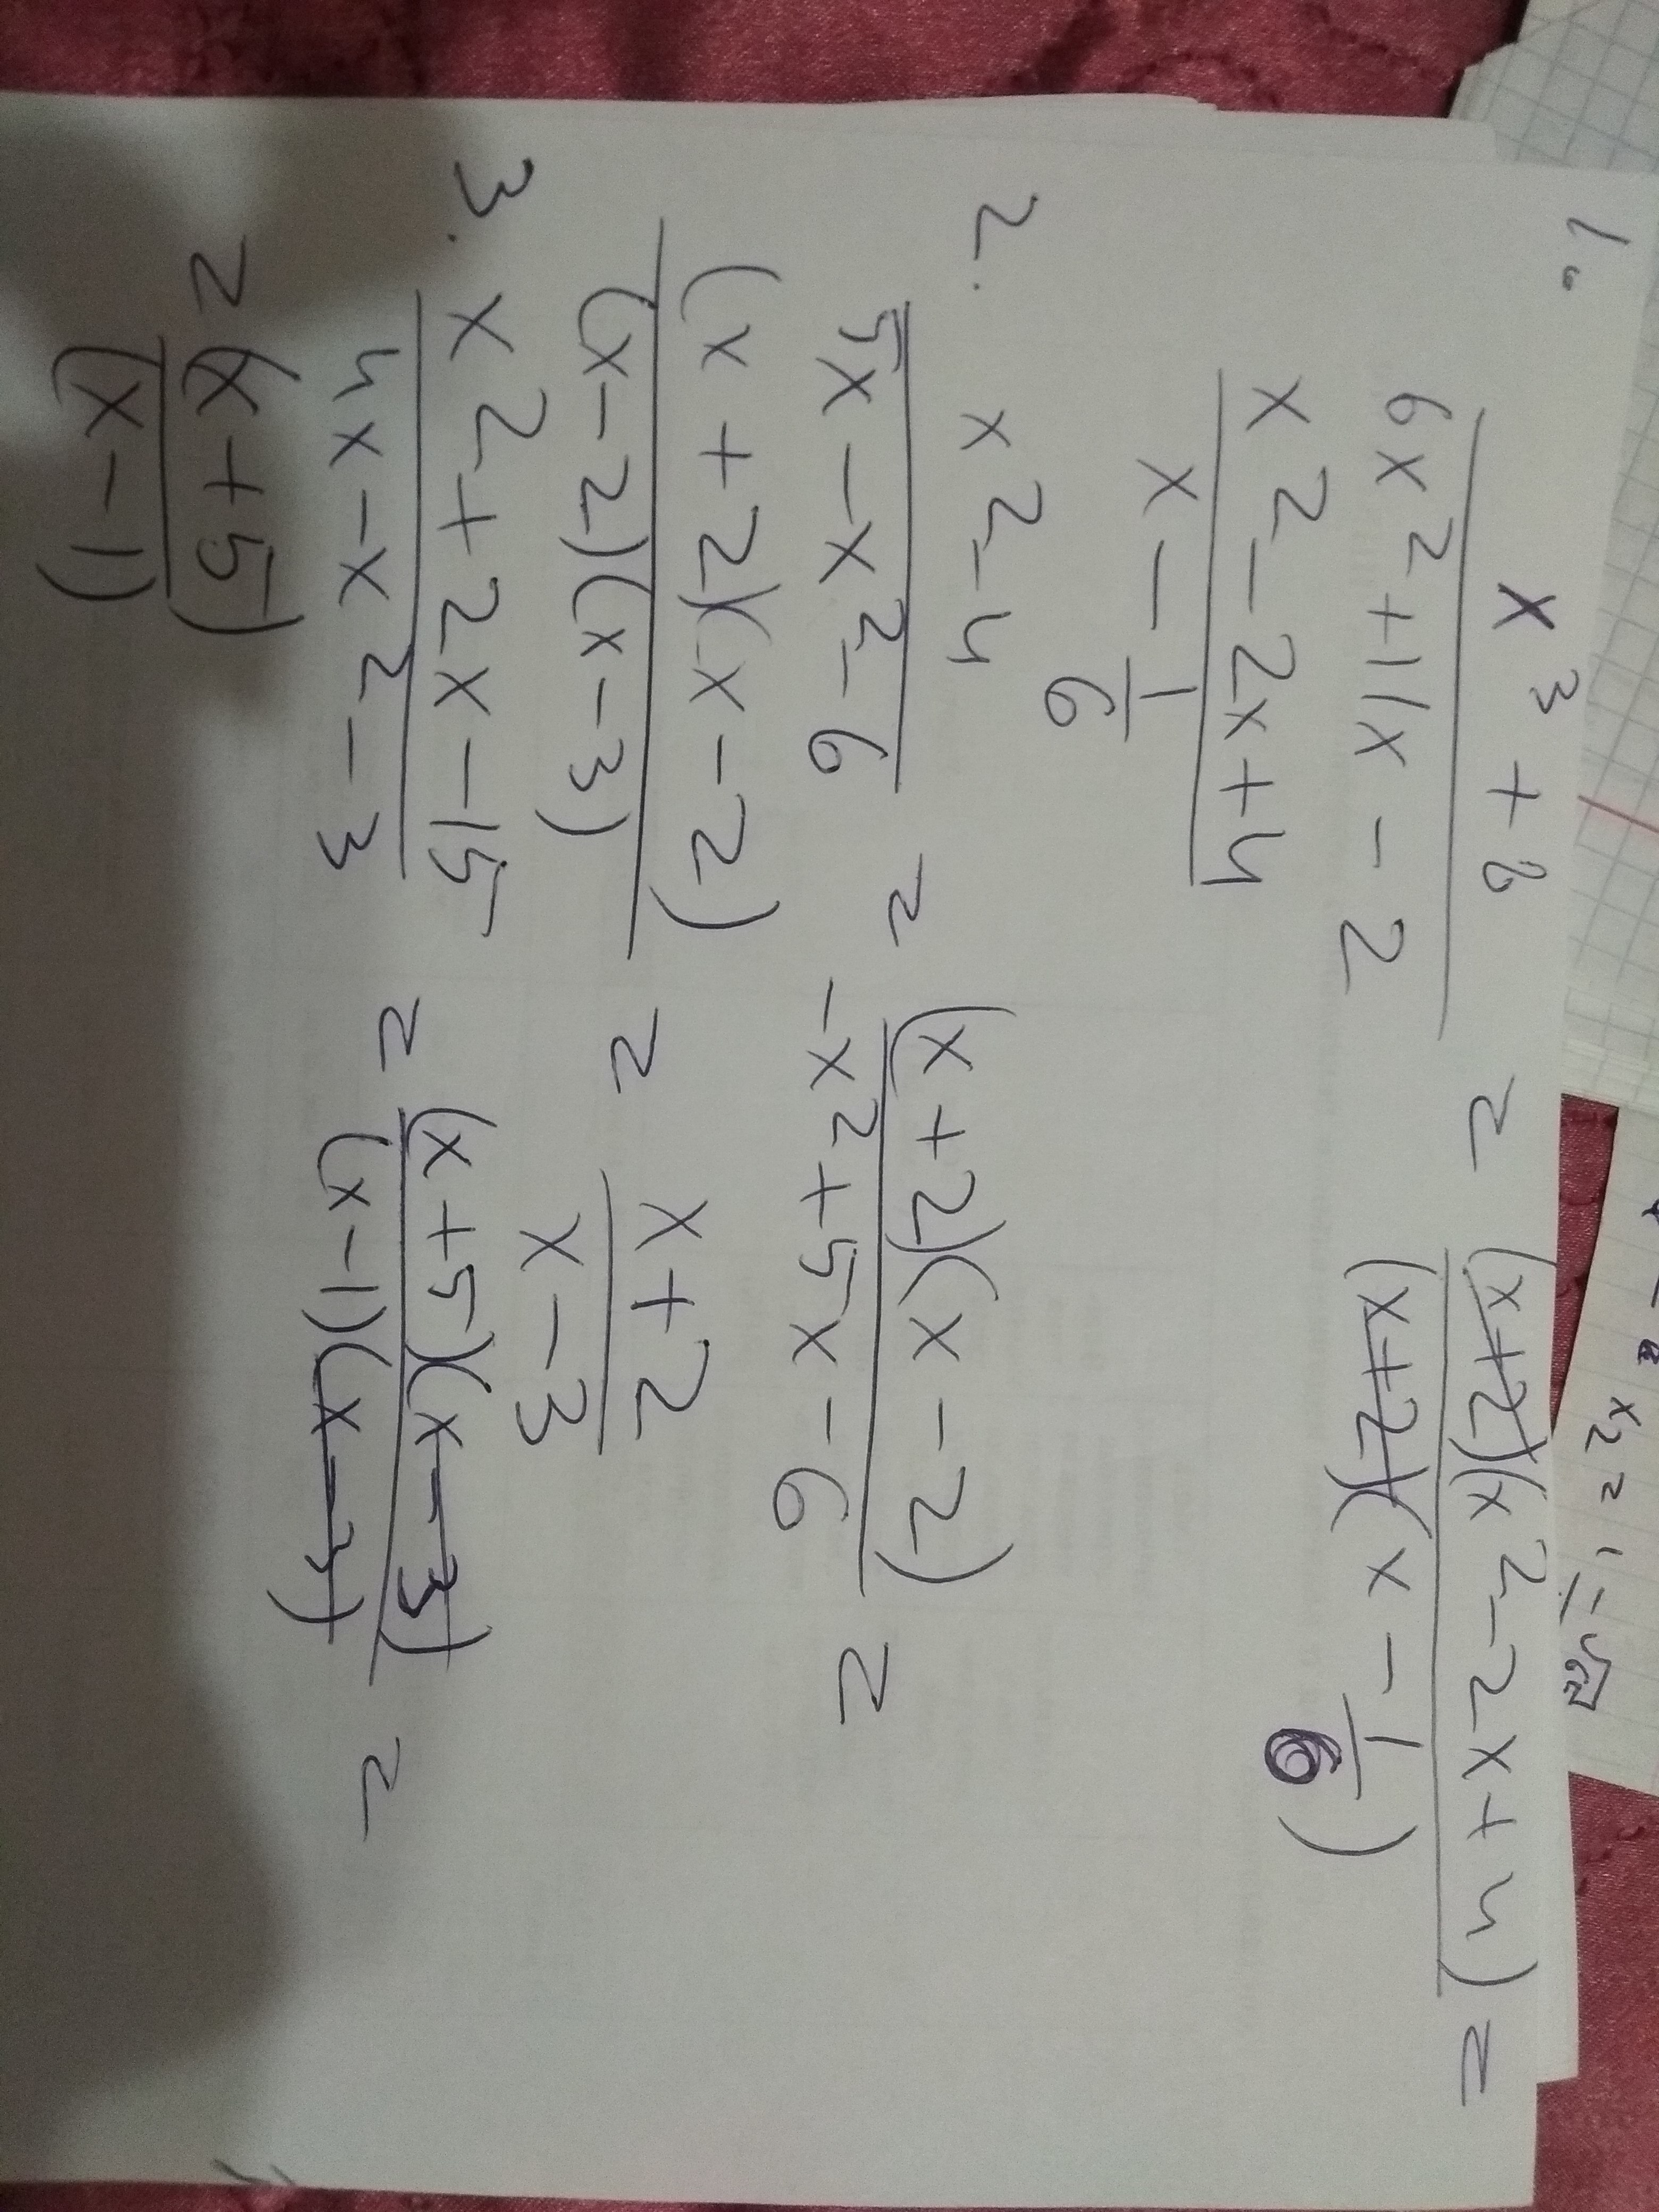 1.
x³ + 8 / 6x² + 11x - 2 = (x+2)(x² - 2x + 4) / (x+2)(x - 1/6) =
x² - 2x + 4 / x - 1/6
2. x² - 4 / 5x - x² - 6 = (x + 2)(x - 2) / -x² + 5x - 6 =
(x + 2)(x - 2) / (x - 2)(x - 3) = x + 2 / x - 3
3. x² + 2x - 15 / 4x - x² - 3 = (x + 5)(x - 3) / (x - 1)(x - 3) =
= (x + 5) / (x - 1)